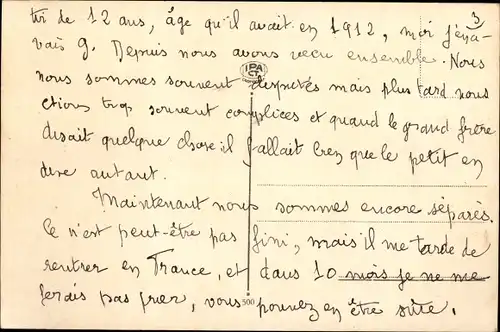 3
tir de 12 ans, âge qu'il avait en 1912, moi j'en a-
vais 9. Depuis nous avons vécu ensemble. Nous
nous sommes souvent disputés mais plus tard nous
étions trop souvent complices et quand le grand frère
disait quelque chose il fallait bien que le petit en
dise autant.
Maintenant nous sommes encore séparés.
Ce n'est peut-être pas fini, mais il me tarde de
rentrer en France, et dans 10 mois je ne me
ferais pas prier, vous pouvez en être sûre.
IPA
CT
500